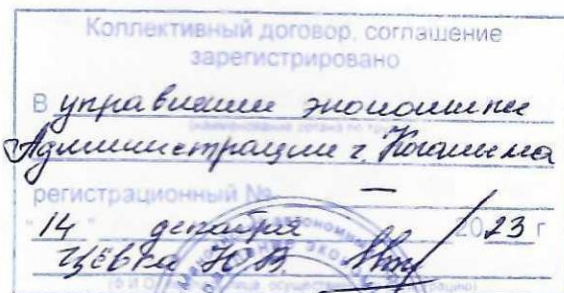 Коллективный договор, соглашение
зарегистрировано
В управлении экономики
(наименование органа по труду)
Администрации г. Когалыма
регистрационный № —
"14" декабря 2023 г
Цёвка Н.В.